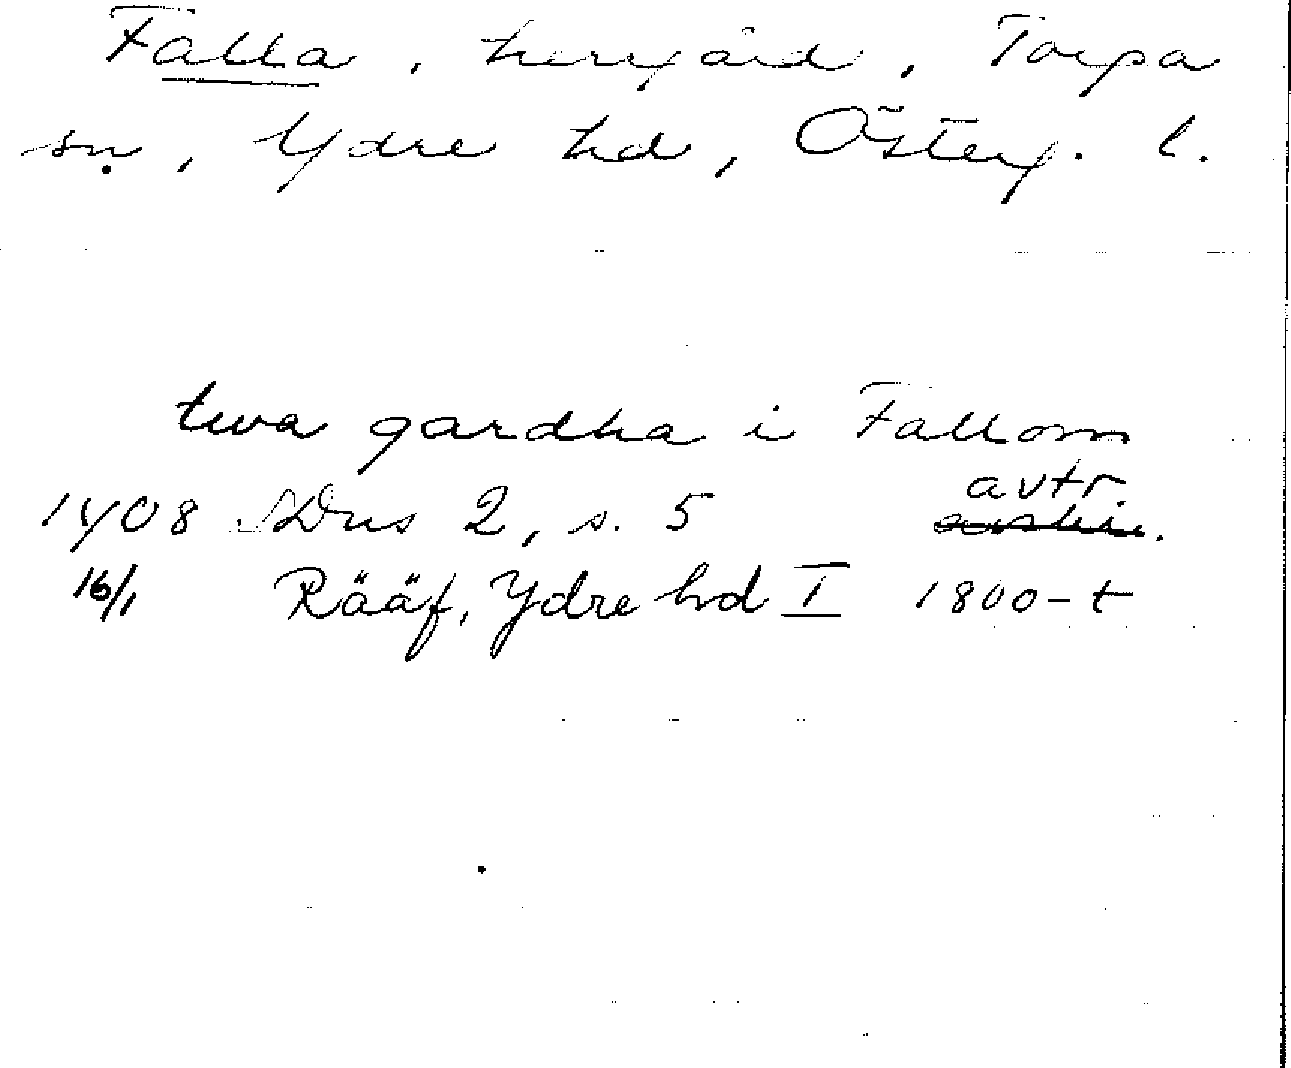 Falla, herrgård, Torpa
sn, Ydre hd, Österg. l.
twa gardha i Fallom
avtr.
1408 SDns 2, s. 5
16/1 Rääf, Ydre hd I 1800-t